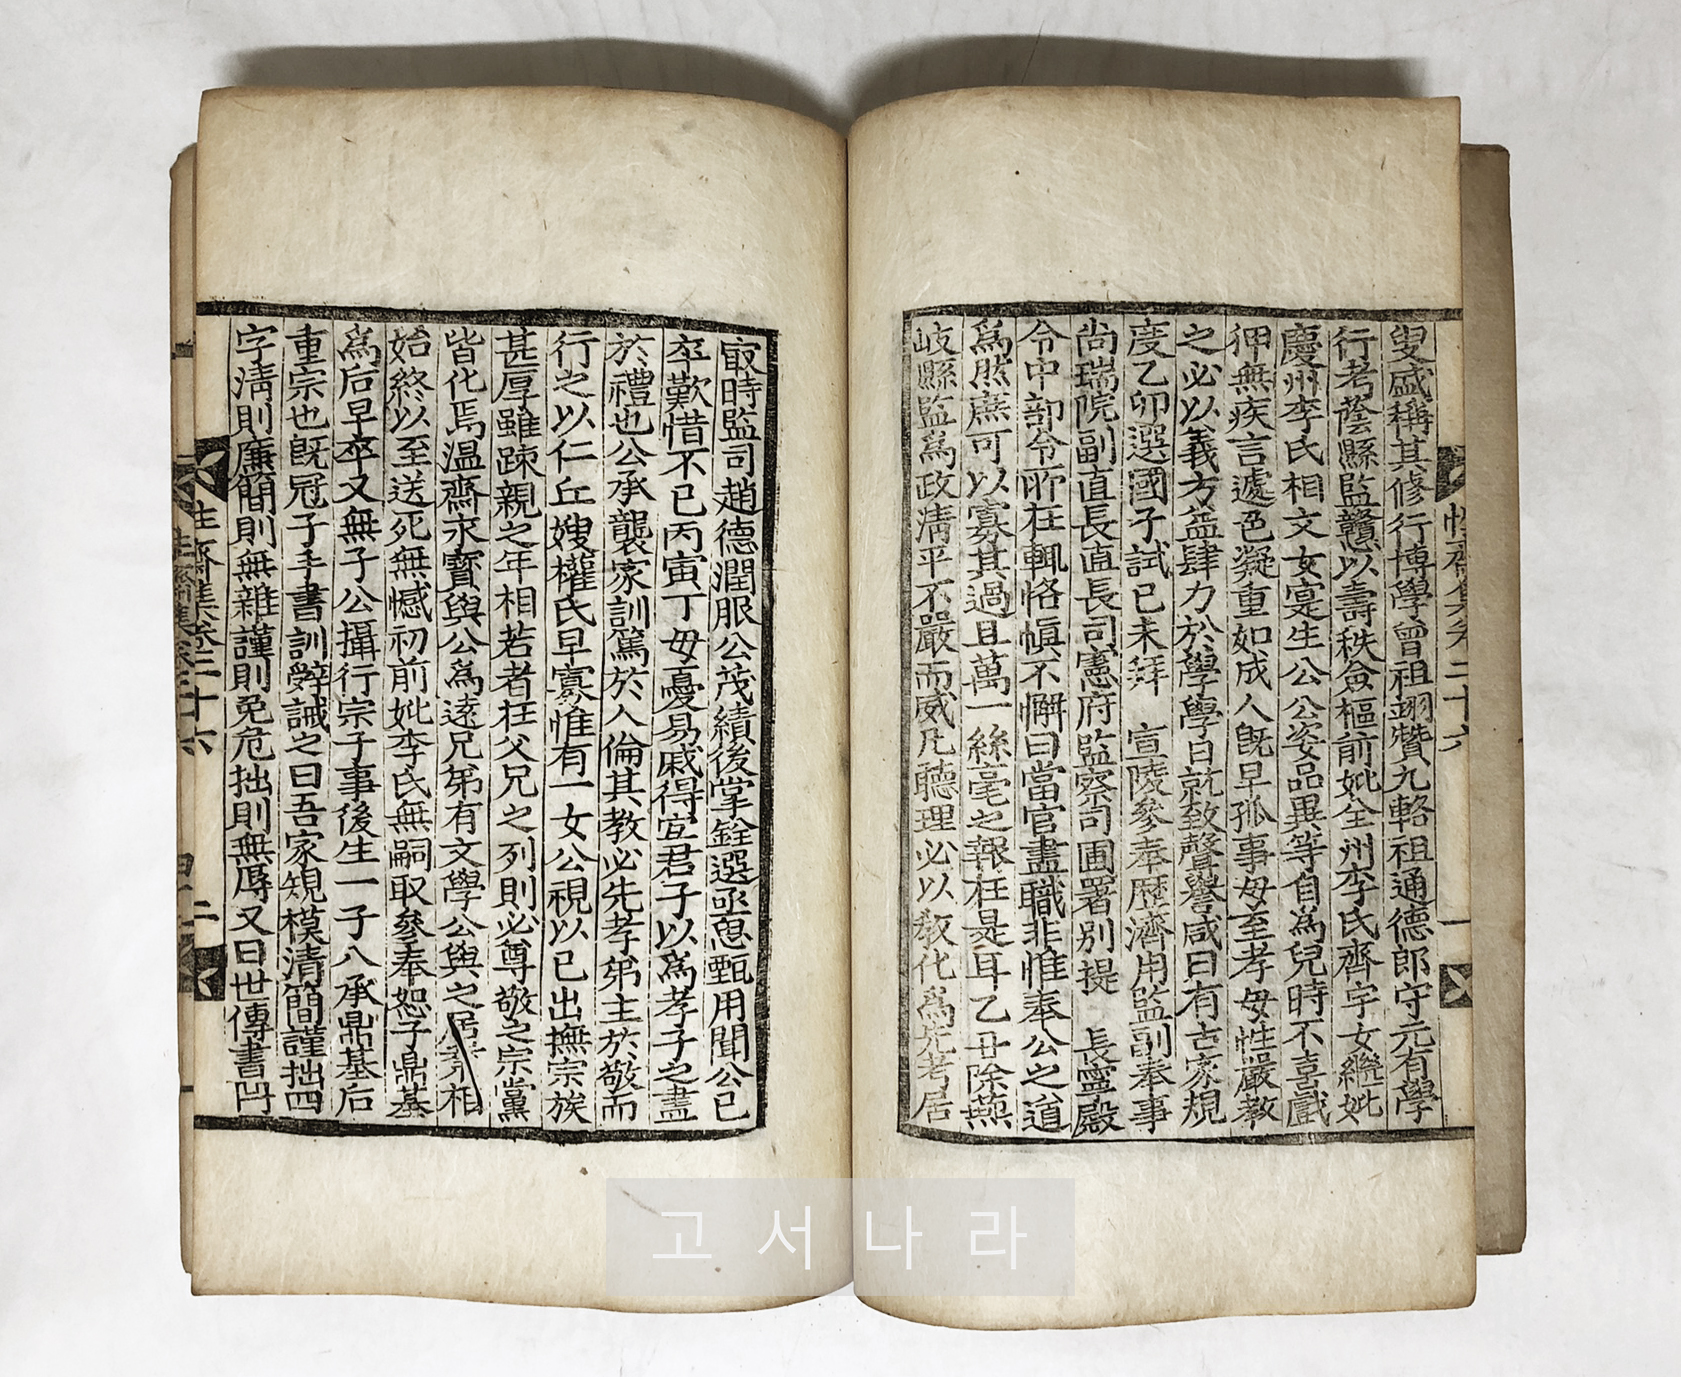 叟盛稱其修行博學曾祖翊贊九輅祖通德郎守元有學
行考蔭縣監贛以壽秩僉樞前妣全州李氏齊宇女繼妣
慶州李氏相文女寔生公公姿品異等自為兒時不喜戲
狎無疾言遽色凝重如成人旣早孤事母至孝母性嚴教
之必以義方益肆力於學學日就致聲譽咸曰有古家規
度乙卯選國子試己未拜 宣陵參奉歷濟用監副奉事
尚瑞院副直長直長司憲府監察司圃署別提 長寧殿
令中部令所在輒恪愼不懈曰當官盡職非惟奉公之道
為然庶可以寡其過且萬一絲毫之報在是耳乙丑除燕
岐縣監為政淸平不嚴而威凡聽理必以敎化為先考居
㝡時監司趙德潤服公茂績後掌銓選亟思甄用聞公已
卒歎惜不已丙寅丁母憂易戚得宜君子以為孝子之盡
於禮也公承襲家訓篤於人倫其教必先孝弟主於敬而
行之以仁丘嫂權氏早寡惟有一女公視以己出撫宗族
甚厚雖踈親之年相若者在父兄之列則必尊敬之宗黨
皆化焉温齋求寶與公為遠兄弟有文學公與之居 相
始終以至送死無憾初前妣李氏無嗣取參奉恕子鼎基
為后早卒又無子公攝行宗子事後生一子八承鼎基后
重宗也旣冠子手書訓辭誡之曰吾家䂓模清簡謹拙四
字淸則廉簡則無雜謹則免危拙則無辱又曰世傳書
性齋集卷二十六 一
性齋集卷二十六 二
고서나라